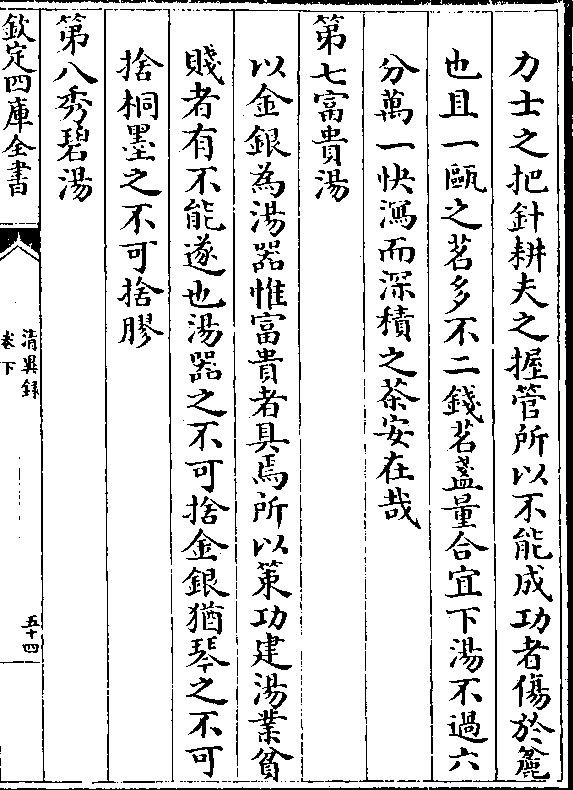 力士之把針耕夫之握管所以不能成功者傷於麄
也且一甌之茗多不二錢茗盞量合宜下湯不過六
分萬一快瀉而深積之茶安在哉
第七富貴湯
以金銀為湯器惟富貴者具焉所以策功建湯業貧
賤者有不能遂也湯器之不可捨金銀猶琴之不可
捨桐墨之不可捨膠
第八秀碧湯
欽定四庫全書
清異録
卷下
五十四